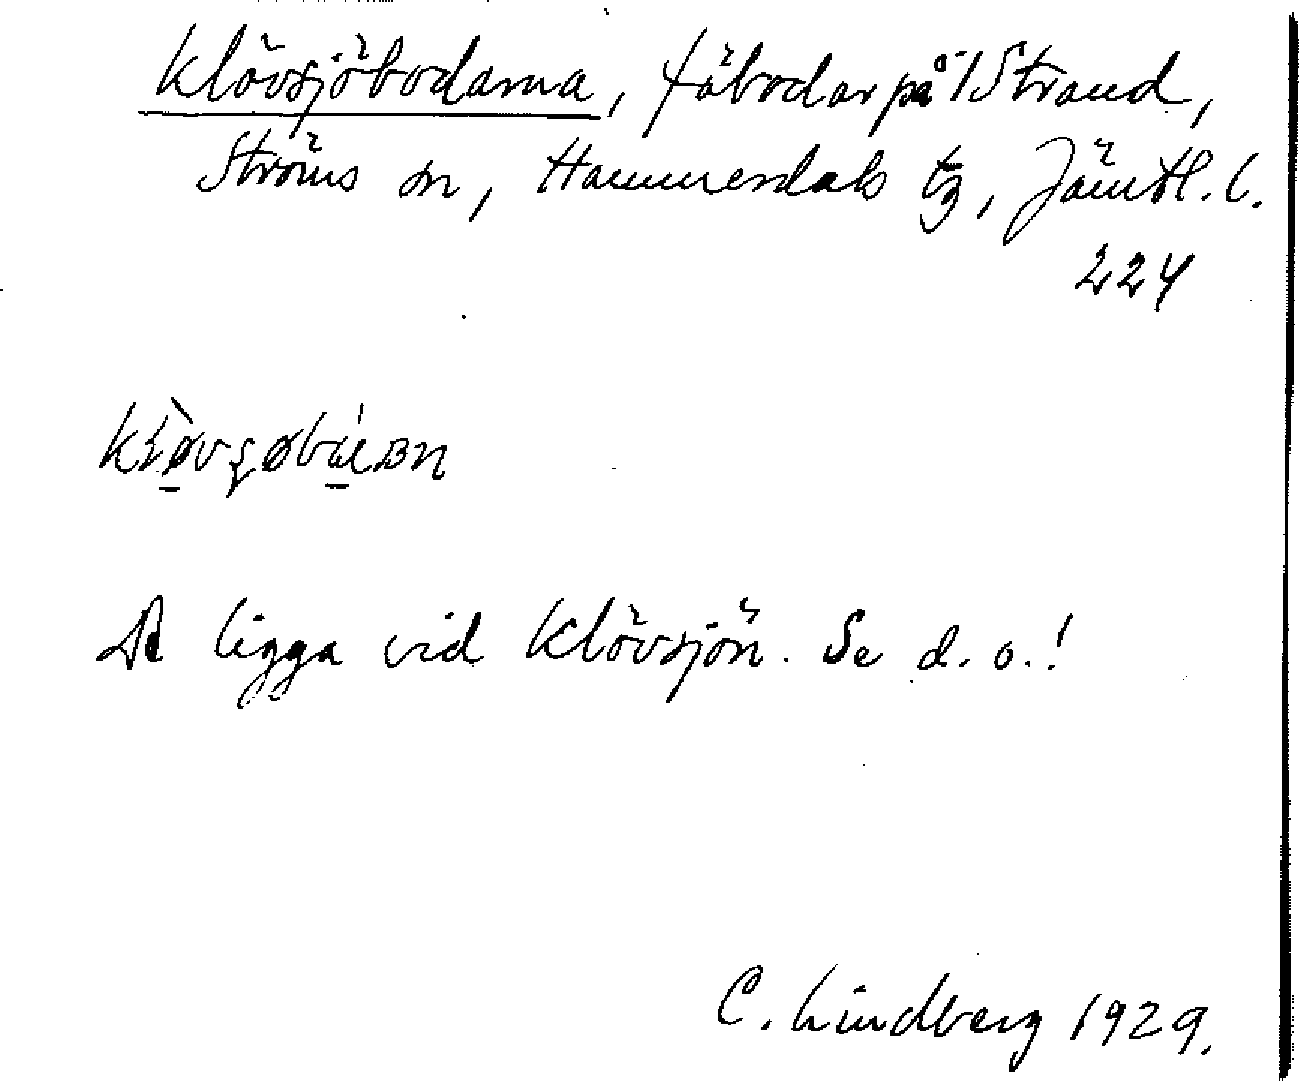 Klövsjöbodarna, fäbodar på 1 Strand,
Ströms sn, Hammerdals tg, Jämtl. l.
224
De ligga vid Klövsjön. Se d. o.!
C. Lindberg 1929.